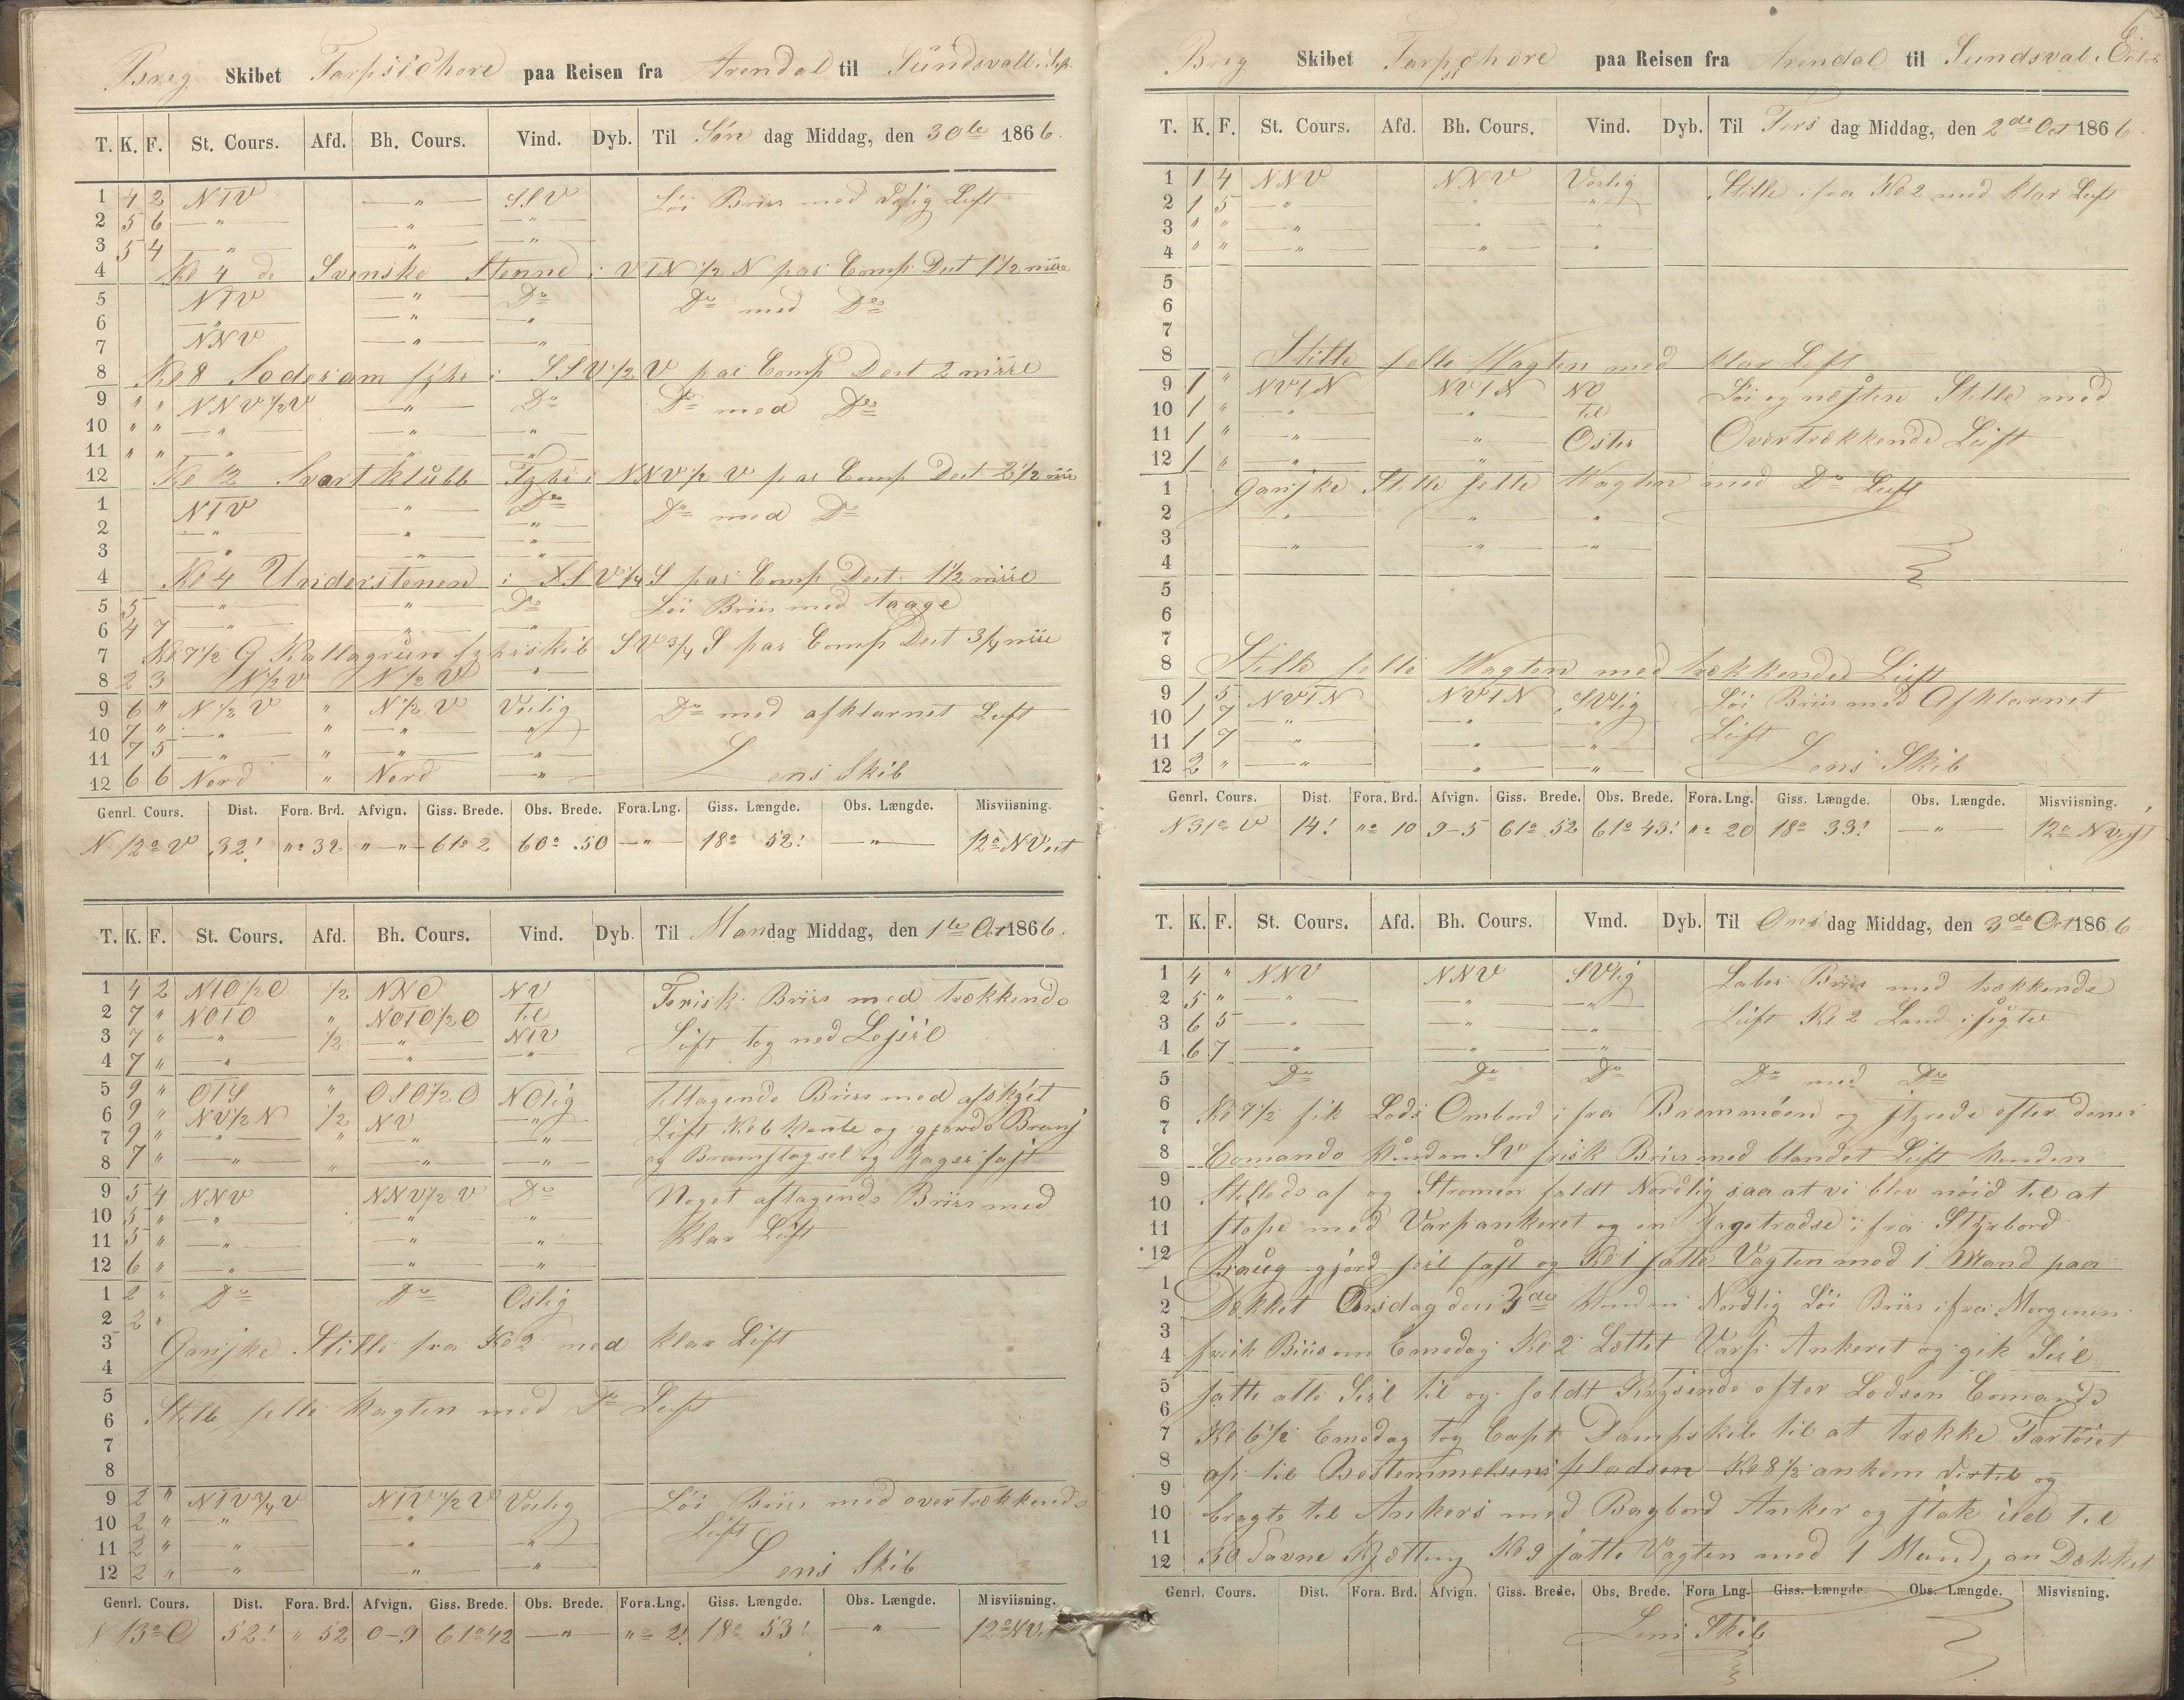 Brig Skibet Tarpsichore paa Reisen fra Arendal til Sundsvall. Sep.
T. K. F. St. Cours. Afd. Bh. Cours. Vind. Dyb. Til Søn dag Middag, den 30te 1866.
1 4 2 NTV — " — SSV Löi Briis med Luft
2 5 6 — " — — " — — " —
3 5 4 — " — — " — — " —
4 Kl 4 de Svenske i VTN 1/2 N par Comp Dest 1 1/2 miil
5 NTV — " — Do Do med Do
6 — " — — " — — " —
7 NNV — " — — " —
8 Kl 8 Soderarm fyhr i SSV 1/2 V par Comp Dest 2 miil
9 " " NNV 1/2 V — " — Do Do med Do
10 " " — " — — " — — " —
11 " " — " — — " — — " —
12 Kl 12 Svartklubb Fyhr i NNV 1/2 V par Comp Dest 2 1/2 miil
1 NTV — " — Do Do med Do
2 — " — — " — — " —
3 — " — — " — — " —
4 Kl 4 Understenen i SSV 1/4 S par Comp Dest 1 1/2 miil
5 5 — " — — " — Do Löi Briis med taage
6 4 7 — " — — " — — " —
7 Kl 7 1/2 G Kallagrun SV 3/4 S par Comp Dest 3/4 miil
8 2 3 N 1/2 V N 1/2 V "
9 6 " N 1/2 V " N 1/2 V Vestlig Do med afklarnet Luft
10 7 " — " — " — " — — " —
11 7 5 — " — " — " — — " —
12 6 6 Nord " Nord — " — Lens Skib
Genrl. Cours. Dist. Fora. Brd. Afvign. Giss. Brede. Obs. Brede. Fora.Lng. Giss. Længde. Obs. Længde. Misviisning.
N 12° V 32! "° 32 " — " — 61° 2 60° 50 — " — 18° 52! — " — 12° NVest
T. K. F. St. Cours. Afd. Bh. Cours. Vind. Dyb. Til Mandag Middag, den 1te Oct 1866.
1 4 2 NTO 1/2 O 1/2 NNO NV Frisk Briis med trækkende
2 7 " NOTO " NOTO 1/2 O til Luft tog ned
3 7 " — " — 1/2 — " — NTV
4 7 " — " — — " — — " —
5 9 " OTS " OSO 1/2 O NOlig tiltagende Briis med
6 9 " NV 1/2 N 1/2 NV — " — Luft Kl 6 Vente og gjorde Bram
7 9 " — " — " — " — — " — og Bramstagsel og Jager fast
8 7 " — " — " — " — — " —
9 5 4 NNV NNV 1/2 V Do Noget aftagende Briis med
10 5 " — " — — " — — " — klar Luft
11 5 " — " — — " — — " —
12 6 " — " — — " — — " —
1 2 " Do Do Oslig
2 2 "
3 Ganske Stille fra Kl 2 med klar Luft
4
5 Stille felle Vagten med Do Luft
6
7
8
9 2 " NTV 3/4 V NTV 1/2 V Vestlig Löi Briis med overtrækkende
10 2 " — " — — " — — " — Luft
11 2 " — " — — " — — " —
12 2 " — " — — " — — " — Lens Skib
Genrl. Cours. Dist. Fora. Brd. Afvign. Giss. Brede. Obs. Brede. Fora.Lng. Giss. Længde. Obs. Længde. Misviisning.
N 13° O 52! " 52 0-9 61° 42 — " — "° 2! 18° 53! — " — 12° NV
Brig Skibet Tarpsichore paa Reisen fra Arendal til Sundsval.
T. K. F. St. Cours. Afd. Bh. Cours. Vind. Dyb. Til Tirs dag Middag, den 2de Oct 1866.
1 1 4 NNV NNV Vestlig Stille ifra Kl 2 med klar Luft
2 1 5 — " — " "
3 " " — " — " "
4 " " — " — " "
5
6
7
8 Stille felle Vagten med klar Luft
9 1 " NVTN NVTN NO Löi og næsten Stille med
10 1 " — " — — " — til Overtrækkende Luft
11 1 " — " — — " — Oster
12 1 " — " — — " —
1 Ganske Stille felle Vagten med Do Luft
2 — " — — " — "
3 — " — — " — — " —
4
5
6
7
8 Stille felle Vagten med trækkende Luft
9 1 5 NVTN NVTN SVlig Löi Briis med Afklarnet
10 1 7 — " — — " — — " — Luft
11 1 7 — " — — " — — " —
12 2 " — " — — " — — " — Lens Skib
Genrl. Cours. Dist. Fora. Brd. Afvign. Giss. Brede. Obs. Brede. Fora.Lng. Giss. Længde. Obs. Længde. Misviisning.
N 31° V 14! "° 10 9-5 61° 52 61° 43! "° 20 18° 33! — " — 12° NVest
T. K. F. St. Cours. Afd. Bh. Cours. Vind. Dyb. Til Ons dag Middag, den 3de Oct 1866
1 4 " NNV NNV SVlig Laber Briis med trækkende
2 5 " — " — — " — — " — Luft Kl 2 Land i sigte
3 6 5 — " — — " — — " —
4 6 7 — " — — " — — " —
5 Do Do Do Do med Do
6 Kl 7 1/2 fik Lods Ombord ifra Bremmöen og styrede efter dens
7
8 Comando Vinden SV frisk Briis med blandet Luft Vinden
9 Stillede af og Strömen faldt Nordlig saa at vi blev nöid til at
10 stope med Varpankeret og en Jagetrodse ifra Styrbord
11
12 Baug gjord seil fast og Kl 1 satte Vagten med 1 Mand paa
1 Dækket Onsdag den 3de Vinden Nordlig Löi Briis ifra Morgenen
2
3 frisk Briis om Emedag Kl 2 Lettet Varp Ankeret og gik Seil
4
5 satte alle Seil til og faldt Krysende efter Lodsen Comando
6
7 Kl 6 1/2 Emedag tog Capt Dampskib til at trække Fartöiet
8 op til Bestemmelsens pladsen Kl 8 1/2 ankom dertil og
9
10 bragte til Ankers med Bagbord Anker og stak ud til
11
12 30 Favne Kjetting Kl 9 satte Vagten med 1 Mand an Dækket
Genrl. Cours. Dist. Fora. Brd. Afvign. Giss. Brede. Obs. Brede. Fora Lng. Giss. Længde. Obs. Længde. Misvisning.
Lens Skib